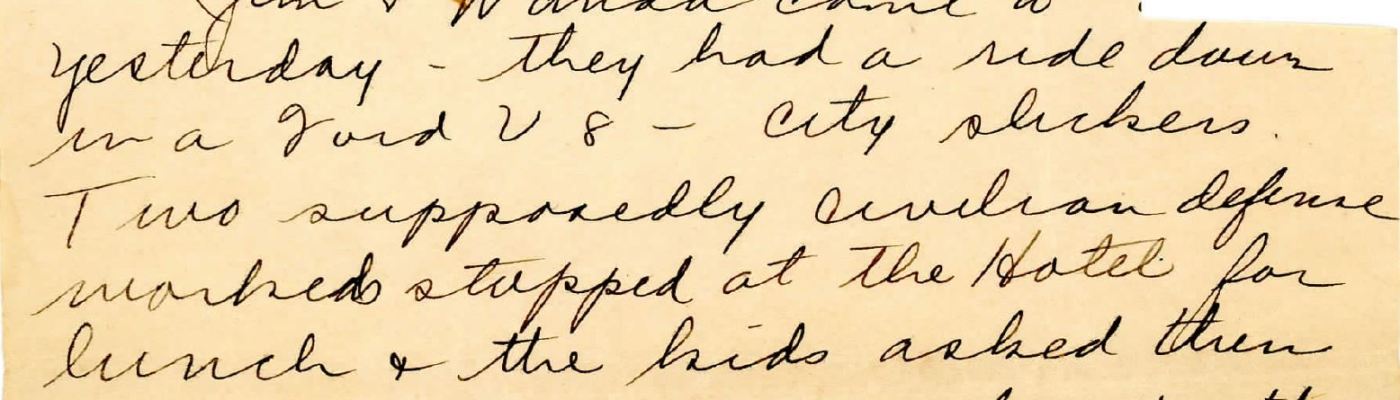 yesterday - they had a ride down
in a Ford V 8 - city slickers.
Two supposedly civilian defense
workeds stopped at the Hotel for
lunch & the kids asked them